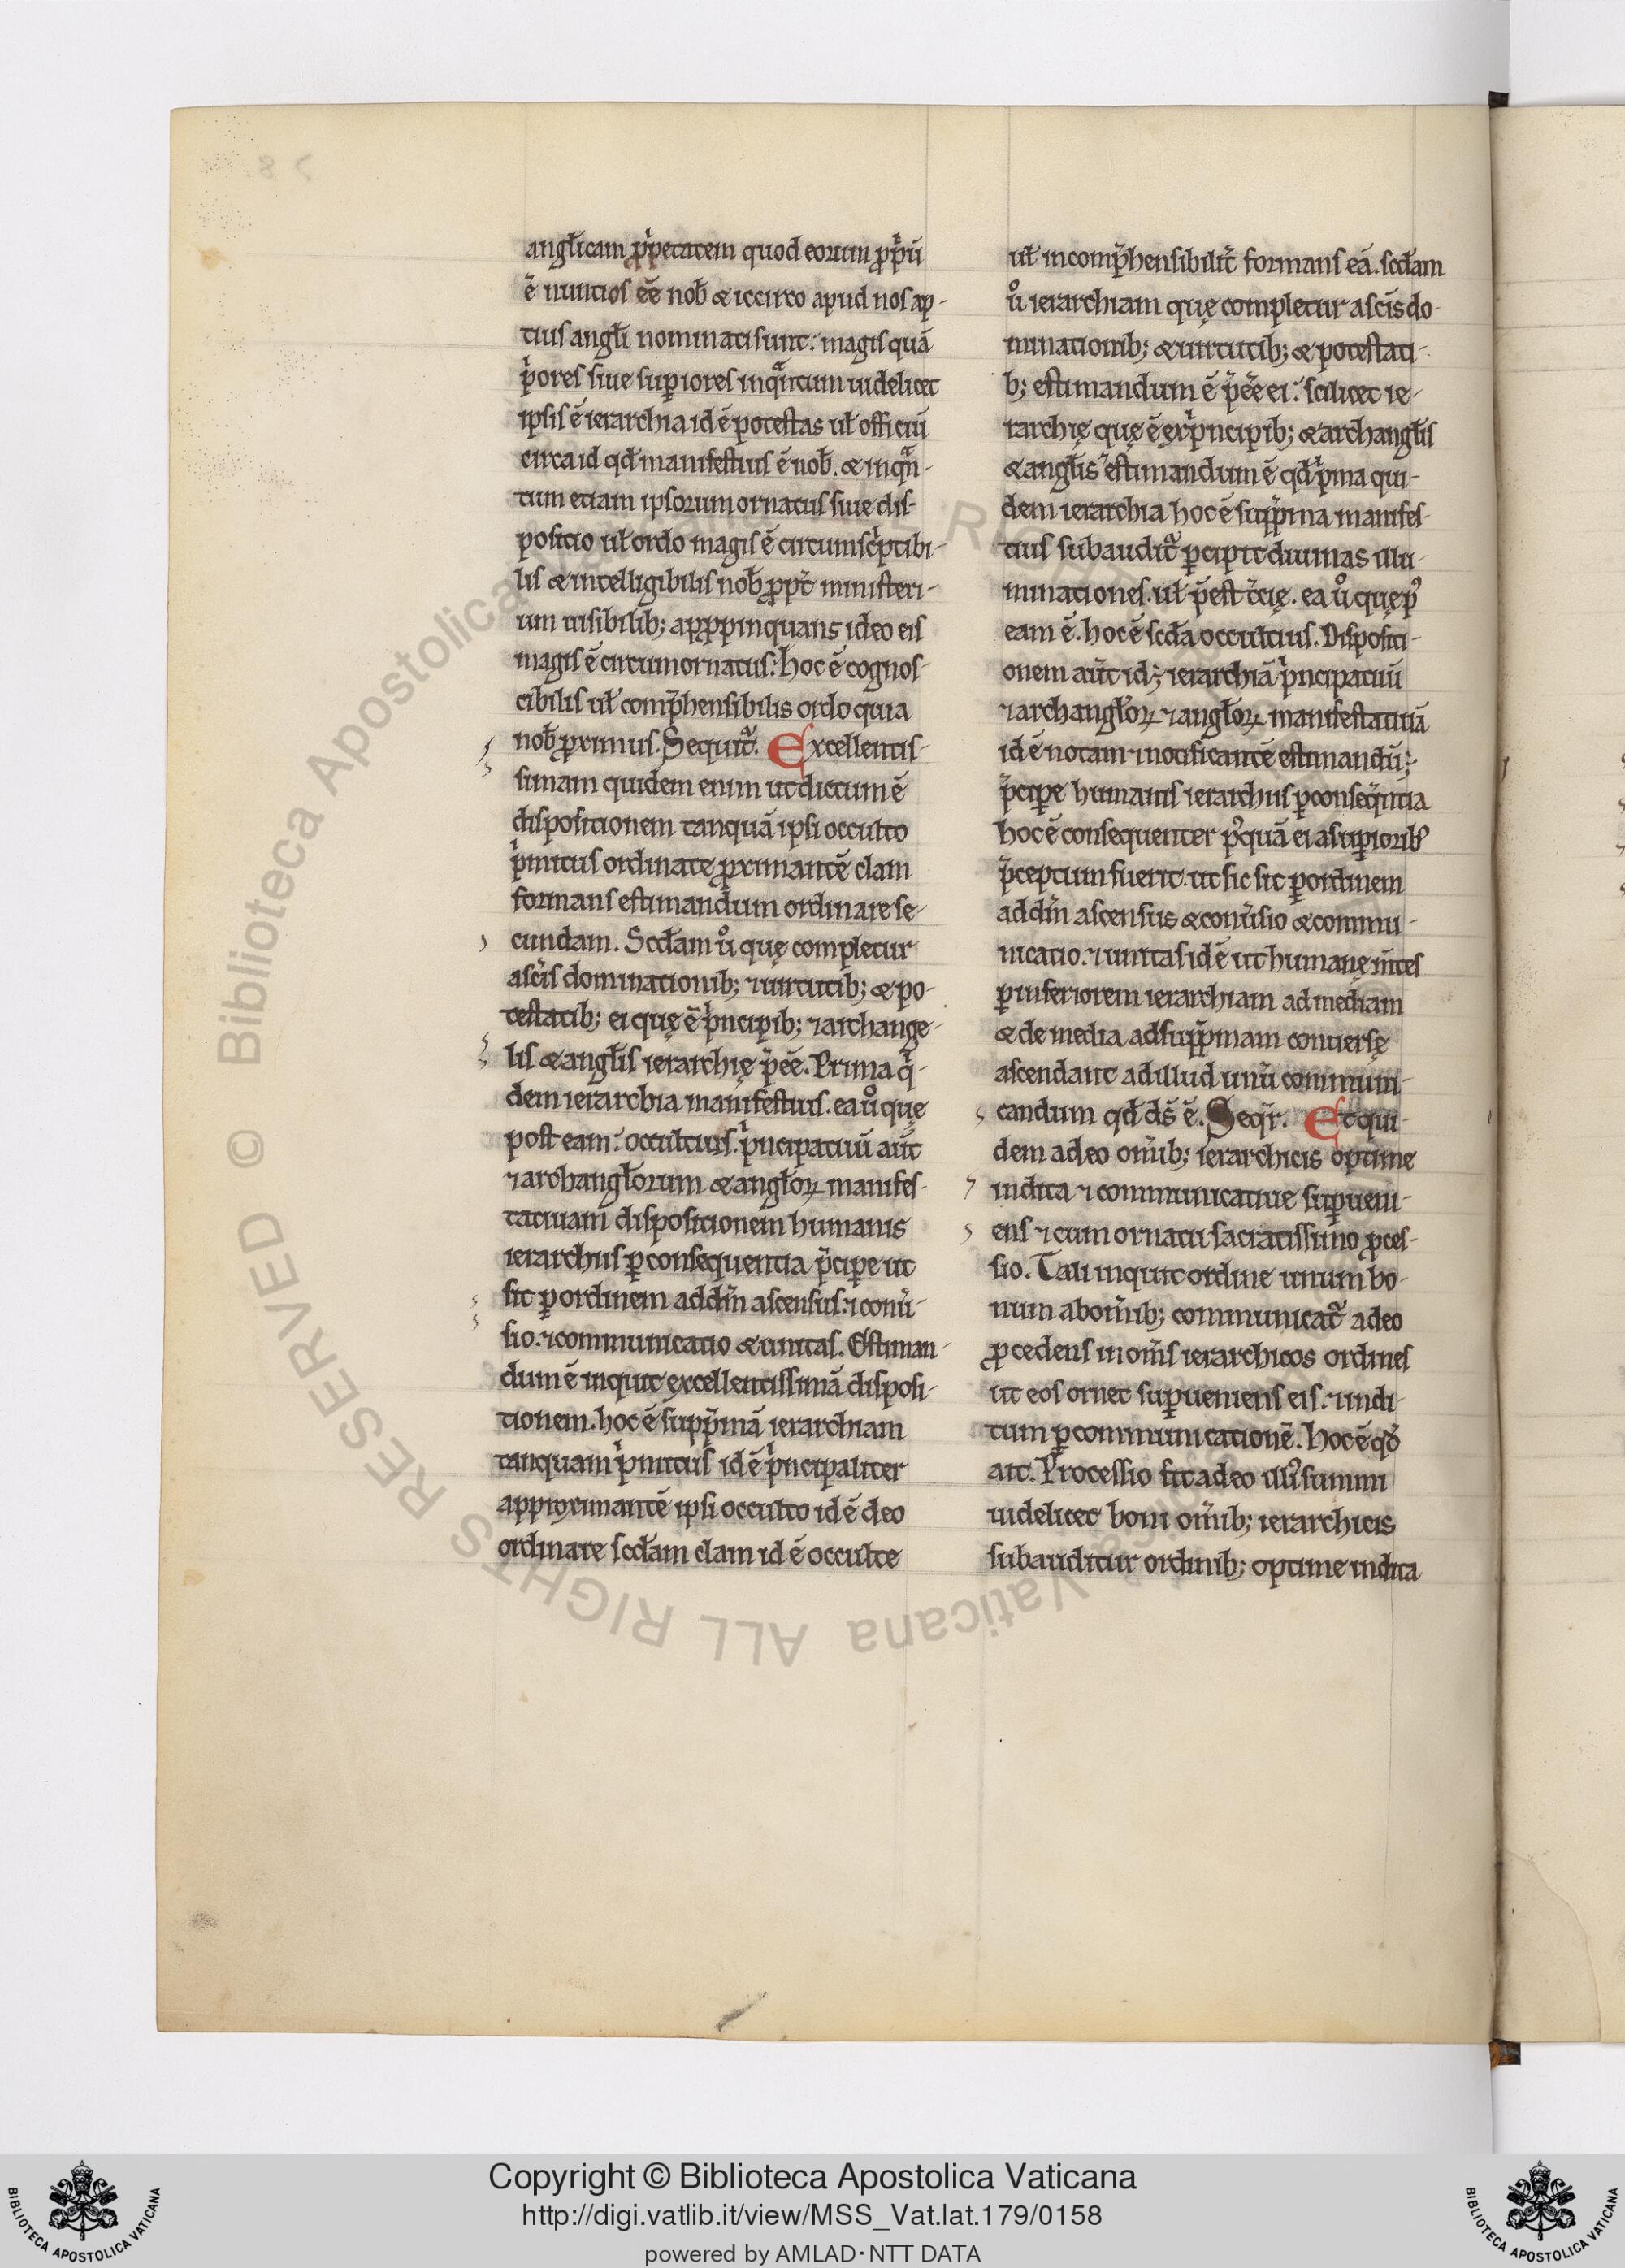 angl̃icam ꝓp̾etatem quod eorum ꝓp̾ú
ē nuntios eē nob̄ & iccirco apud nos ap-
tius angl̃i nominati sunt: magis quā
p̾ores siue suꝑiores inqͣntum uidelicet
ipsis ē ierarchia id ē potestas ul̃ officiū
circa id qd̄ manifestius ē nob̄. & inqͣn-
tum etiam ipsorum ornatus siue dis-
positio ul̃ ordo magis ē circumsc̾ptibi-
lis & intelligibilis nob̄ ꝓpt̃ ministeri-
um uisibilib; apꝓpinquans ideo eis
magis ē circumornatus: hoc ē cognos-
cibilis ul̃ comp̄hensibilis ordo quia
nob̄ ꝓximus. Sequit᷑. Excellentis-
simam quidem enim ut dictum ē
dispositionem tanquā ipsi occulto
p̾mitus ordinate ꝓximantē clam
formans estimandum ordinare se-
cundam. Scd̄am u̾o quę completur
a sc̄is dominationib; ⁊ uirtutib; & po-
testatib; ei quę ē p̾ncipib; ⁊ archange-
lis & angl̃is ierarchię p̄eē. Prima q̾-
dem ierarchia manifestius. ea u̾o quę
post eam: occultius. p̾ncipatuū aut̄
⁊ archangl̃orum & angl̃oꝝ manifes-
tatiuam dispositionem humanis
ierarchiis ꝑ consequentia p̄cipe ut
sit ꝑ ordinem ad dm̄ ascensus: ⁊ conū-
sio. ⁊ communicatio & unitas. Estiman-
dum ē inquit excellentissimā disposi-
tionem. hoc ē supp̄mā ierarchiam
tanquam p̾mitus id ē p̾ncipaliter
approximantē ipsi occulto id ē deo
ordinare scd̄am clam id ē occulte
ul̃ incomp̄hensibilit̃ formans eā. scd̄am
u̾o ierarchiam quę completur a sc̄is do-
minationib; & uirtutib; & potestati-
b; estimandum ē p̄eē ei: scilicet ie-
rarchię quę ē ex p̾ncipib; & archangl̃is
& angl̃is estimandum ē qd̄ p̾ma qui-
dem ierarchia hoc ē supp̄ma manifes-
tius subaudit᷑ ꝑcipit diuinas illu-
minationes. ul̃ p̄est t̃cię. ea u̾o quę pꝰ
eam ē. hoc ē scd̄a occultius. Dispositi-
onem aut̄ id ē ierarchiā p̾ncipatuū
⁊ archangl̃oꝝ ⁊ angl̃oꝝ manifestatiuā
id ē notam ⁊ notificantē estimandū ē
p̄cipe humanis ierarchiis ꝑ conseqͣntia
hoc ē consequenter pꝰquā ei a suꝑiorib̾
p̄ceptum fuerit. ut sic sit ꝑ ordinem
ad dm̄ ascensus & conūsio & commu-
nicatio. ⁊ unitas id ē ut humanę m̄tes
ꝑ inferiorem ierarchiam ad mediam
& de media ad supp̄mam conuersę
ascendant ad illud unū communi-
candum qd̄ ds̄ ē. Seqr̄. Et qui-
dem a deo om̄ib; ierarchicis optime
indita ⁊ communicatiue suꝑueni-
ens ⁊ cum ornatu sacratissimo ꝓces-
sio. Tali inquit ordine unum bo-
num ab om̄ib; communicat᷑ a deo
ꝓcedens in om̄s ierarchicos ordines
ut eos ornet suꝑueniens eis. ⁊ indi-
tum ꝑ communicationē. hoc ē qd̾
ait. Processio fit a deo illi̾ summi
uidelicet boni om̄ib; ierarchicis
subauditur ordinib; optime indita
© Biblioteca Apostolica Vaticana ALL RIGHTS RESERVED
Copyright © Biblioteca Apostolica Vaticana
http://digi.vatlib.it/view/MSS_Vat.lat.179/0158
powered by AMLAD·NTT DATA
BIBLIOTECA APOSTOLICA VATICANA
BIBLIOTECA APOSTOLICA VATICANA